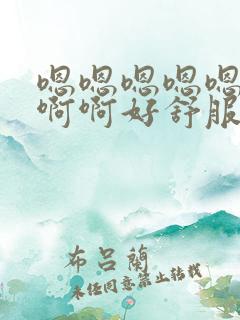 嗯嗯嗯嗯嗯
啊啊好舒服
布吕蘭
未经同意禁止转载